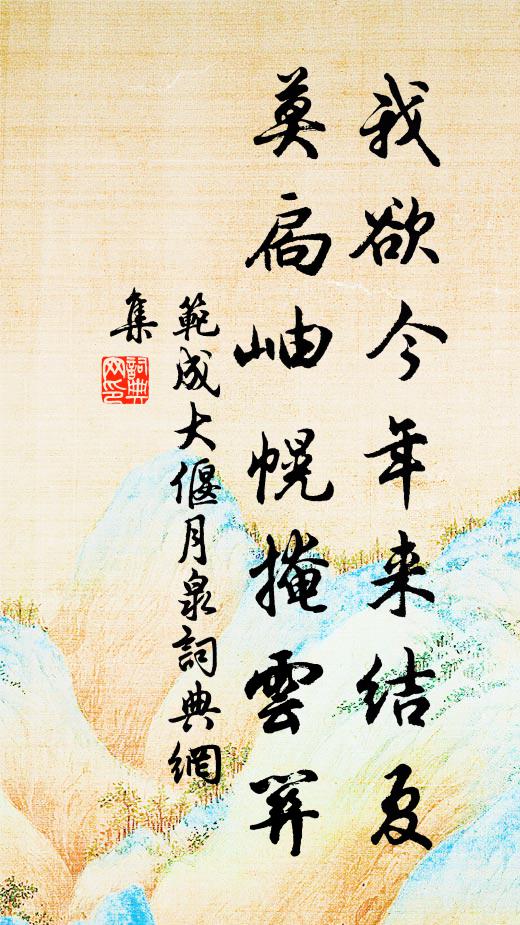 我欲今年来结夏
莫扃岫幌掩雲關
範成大偃月泉詞典網
集
詞典
网印